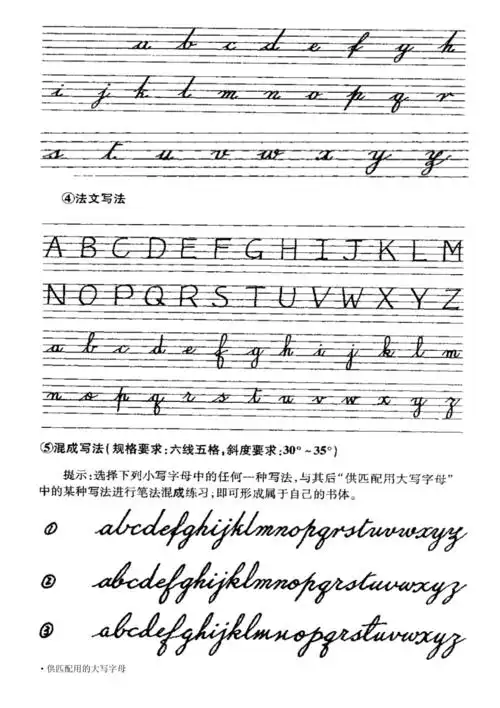 a b c d e f g h
i j k l m n o p q r
s t u v w x y z
④法文写法
A B C D E F G H I J K L M
N O P Q R S T U V W X Y Z
a b c d e f g h i j k l m
n o p q r s t u v w x y z
⑤混成写法(规格要求:六线五格,斜度要求:30°~35°)
提示:选择下列小写字母中的任何一种写法,与其后“供匹配用大写字母”
中的某种写法进行笔法混成练习;即可形成属于自己的书体。
① abcdefghijklmnopqrstuvwxyz
② abcdefghijklmnopqrstuvwxyz
③ abcdefghijklmnopqrstuvwxyz
·供匹配用的大写字母